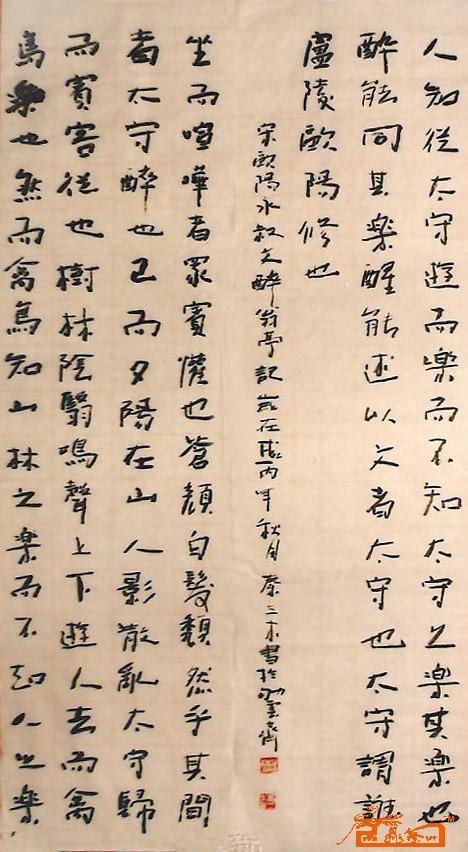 人知從太守遊而樂而不知太守之樂其樂也
醉能同其樂醒能述以文者太守也太守謂誰
廬陵歐陽修也
宋歐陽永叔文醉翁亭記歲在戌丙年秋月秦三木書於雲齋
坐而喧嘩者眾賓懽也蒼顏白髮頹然乎其間
者太守醉也已而夕陽在山人影散亂太守歸
而賓客從也樹林陰翳鳴聲上下遊人去而禽
鳥樂也然而禽鳥知山林之樂而不知人之樂